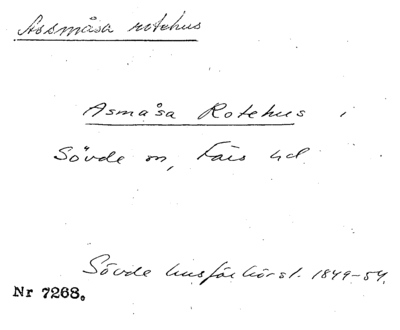 Assmåsa rotehus
Asmåsa Rotehus i
Sövde sn, Färs hd
Sövde husförhörsl. 1849-54.
Nr 7268.